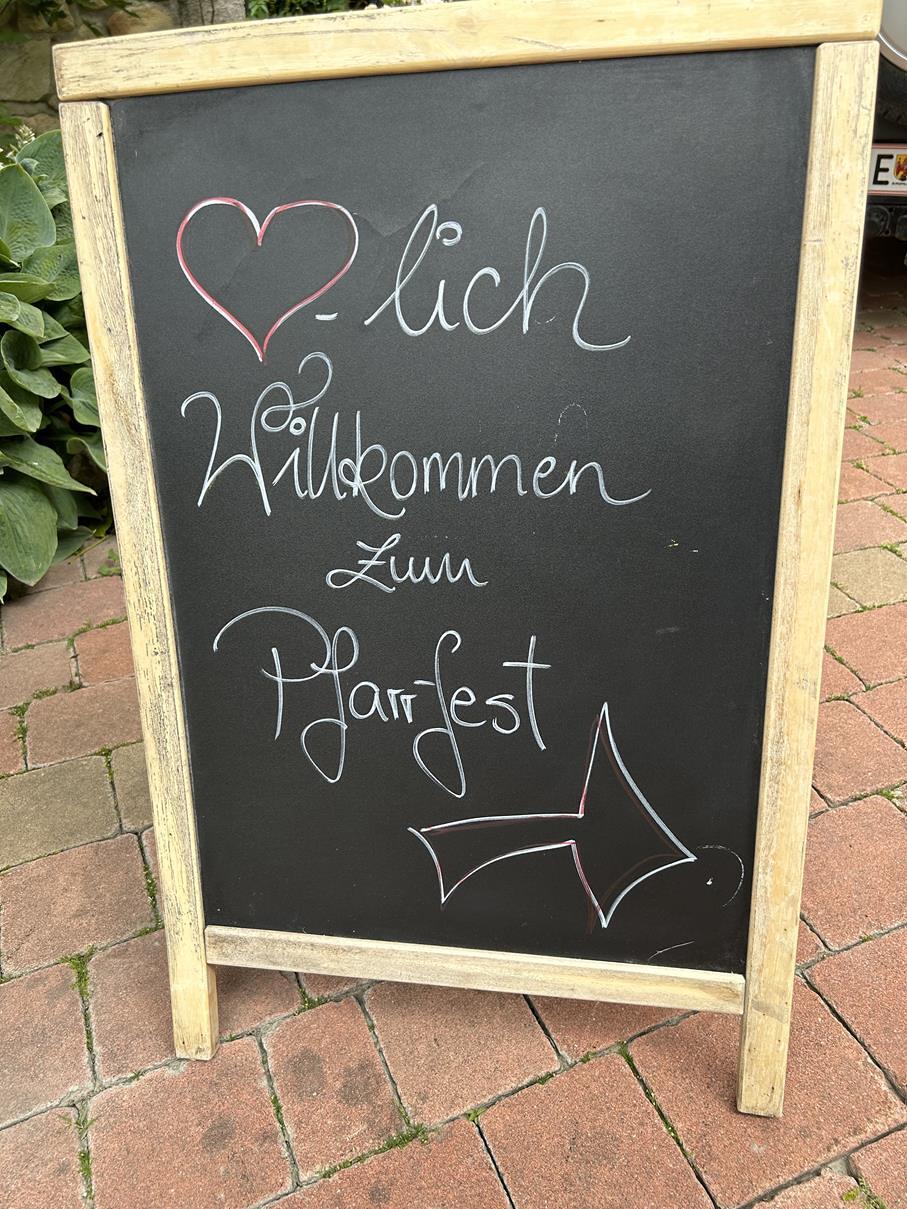 ♥-lich
Willkommen
zum
Pfarrfest
E